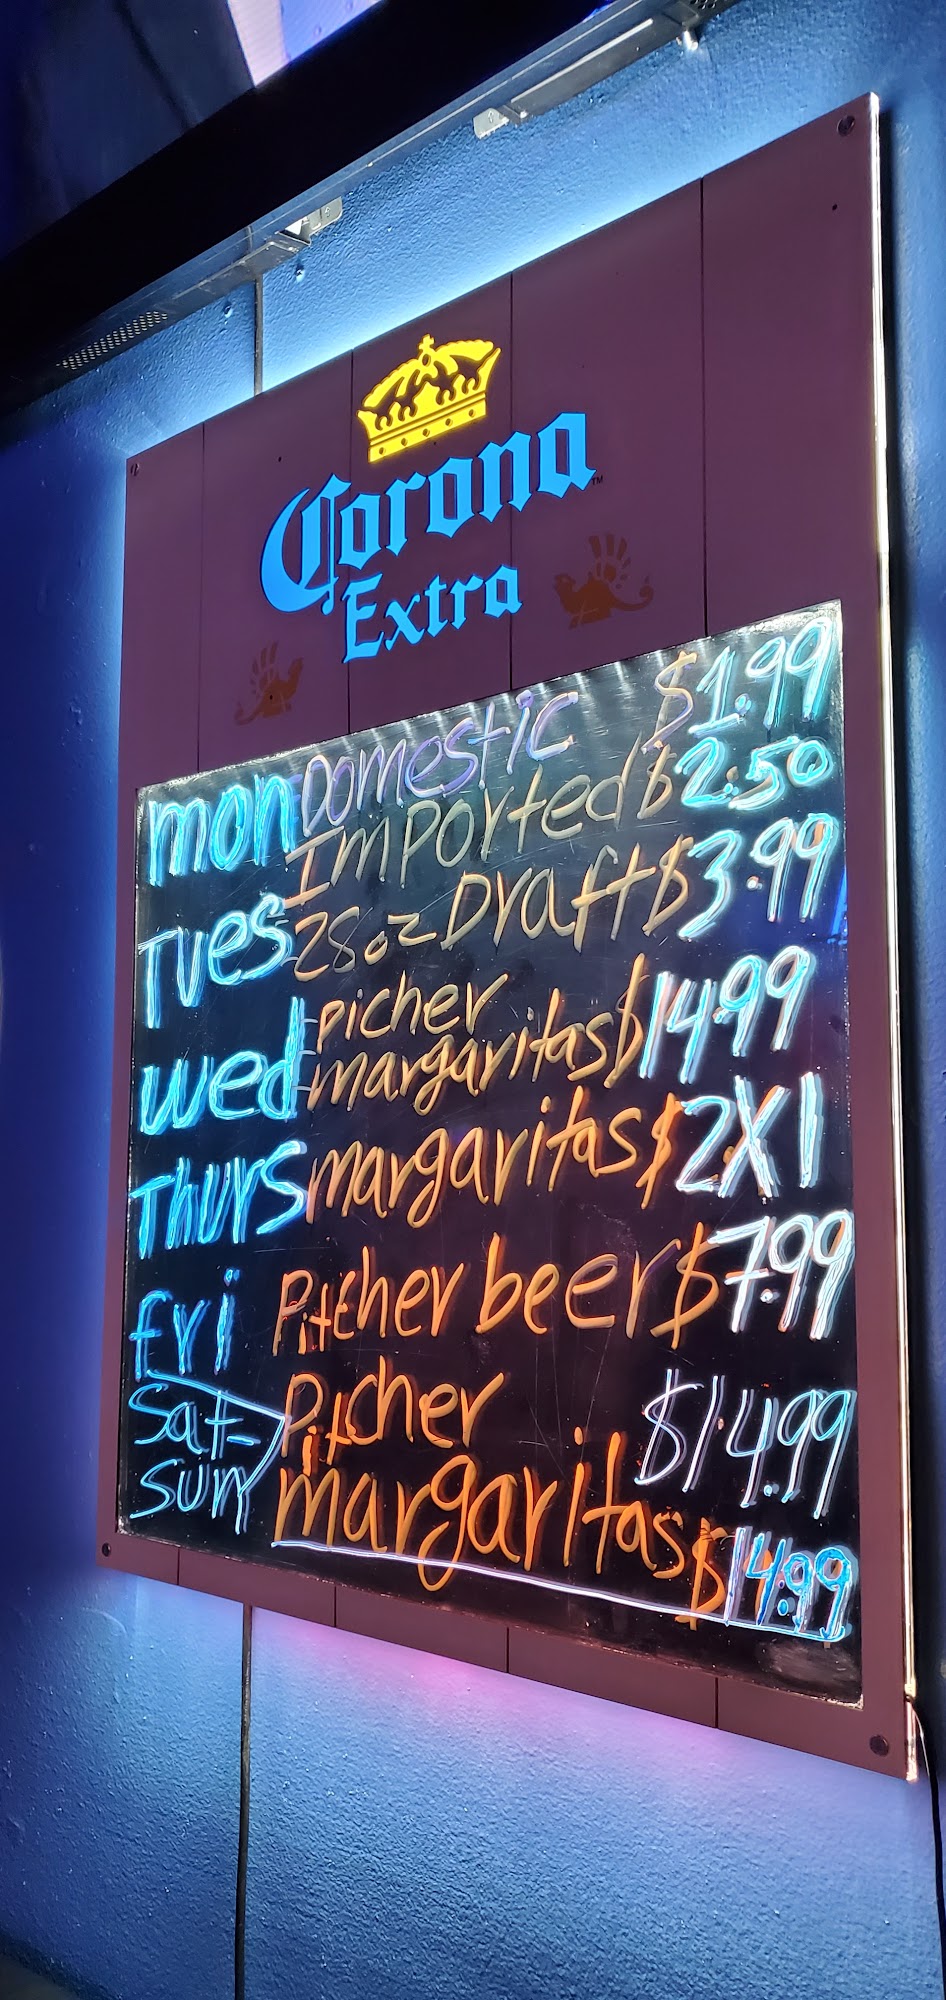 Corona™
Extra
mon Domestic $1.99
Imported $2.50
Tues 28oz Draft $3.99
wed picher
margaritas $14.99
Thurs margaritas $2X1
fri Pitcher beer $7.99
Sat- Pitcher $14.99
sun margaritas $14.99